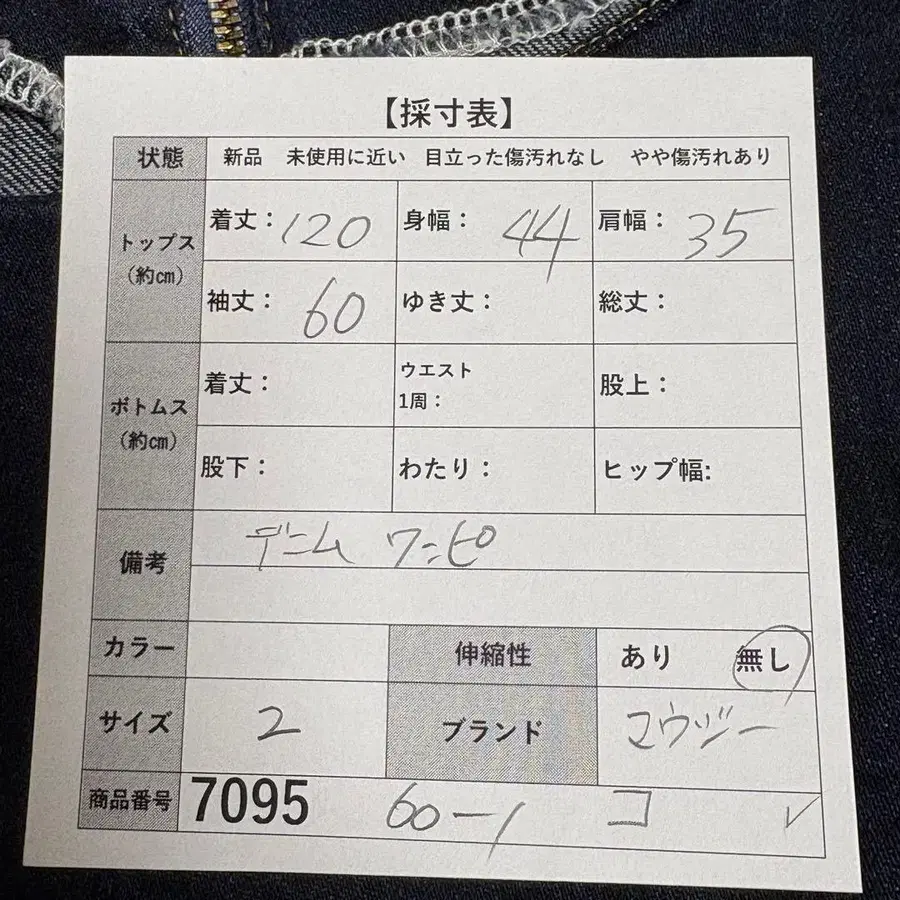 【採寸表】
状態 新品 未使用に近い 目立った傷汚れなし やや傷汚れあり
トップス（約㎝）
着丈：120 身幅：44 肩幅：35
袖丈：60 ゆき丈： 総丈：
ボトムス（約㎝）
着丈： ウエスト1周： 股上：
股下： わたり： ヒップ幅:
備考 デニム ワンピ
カラー 伸縮性 あり 無し
サイズ 2 ブランド マウジー
商品番号 7095 60-1 コ